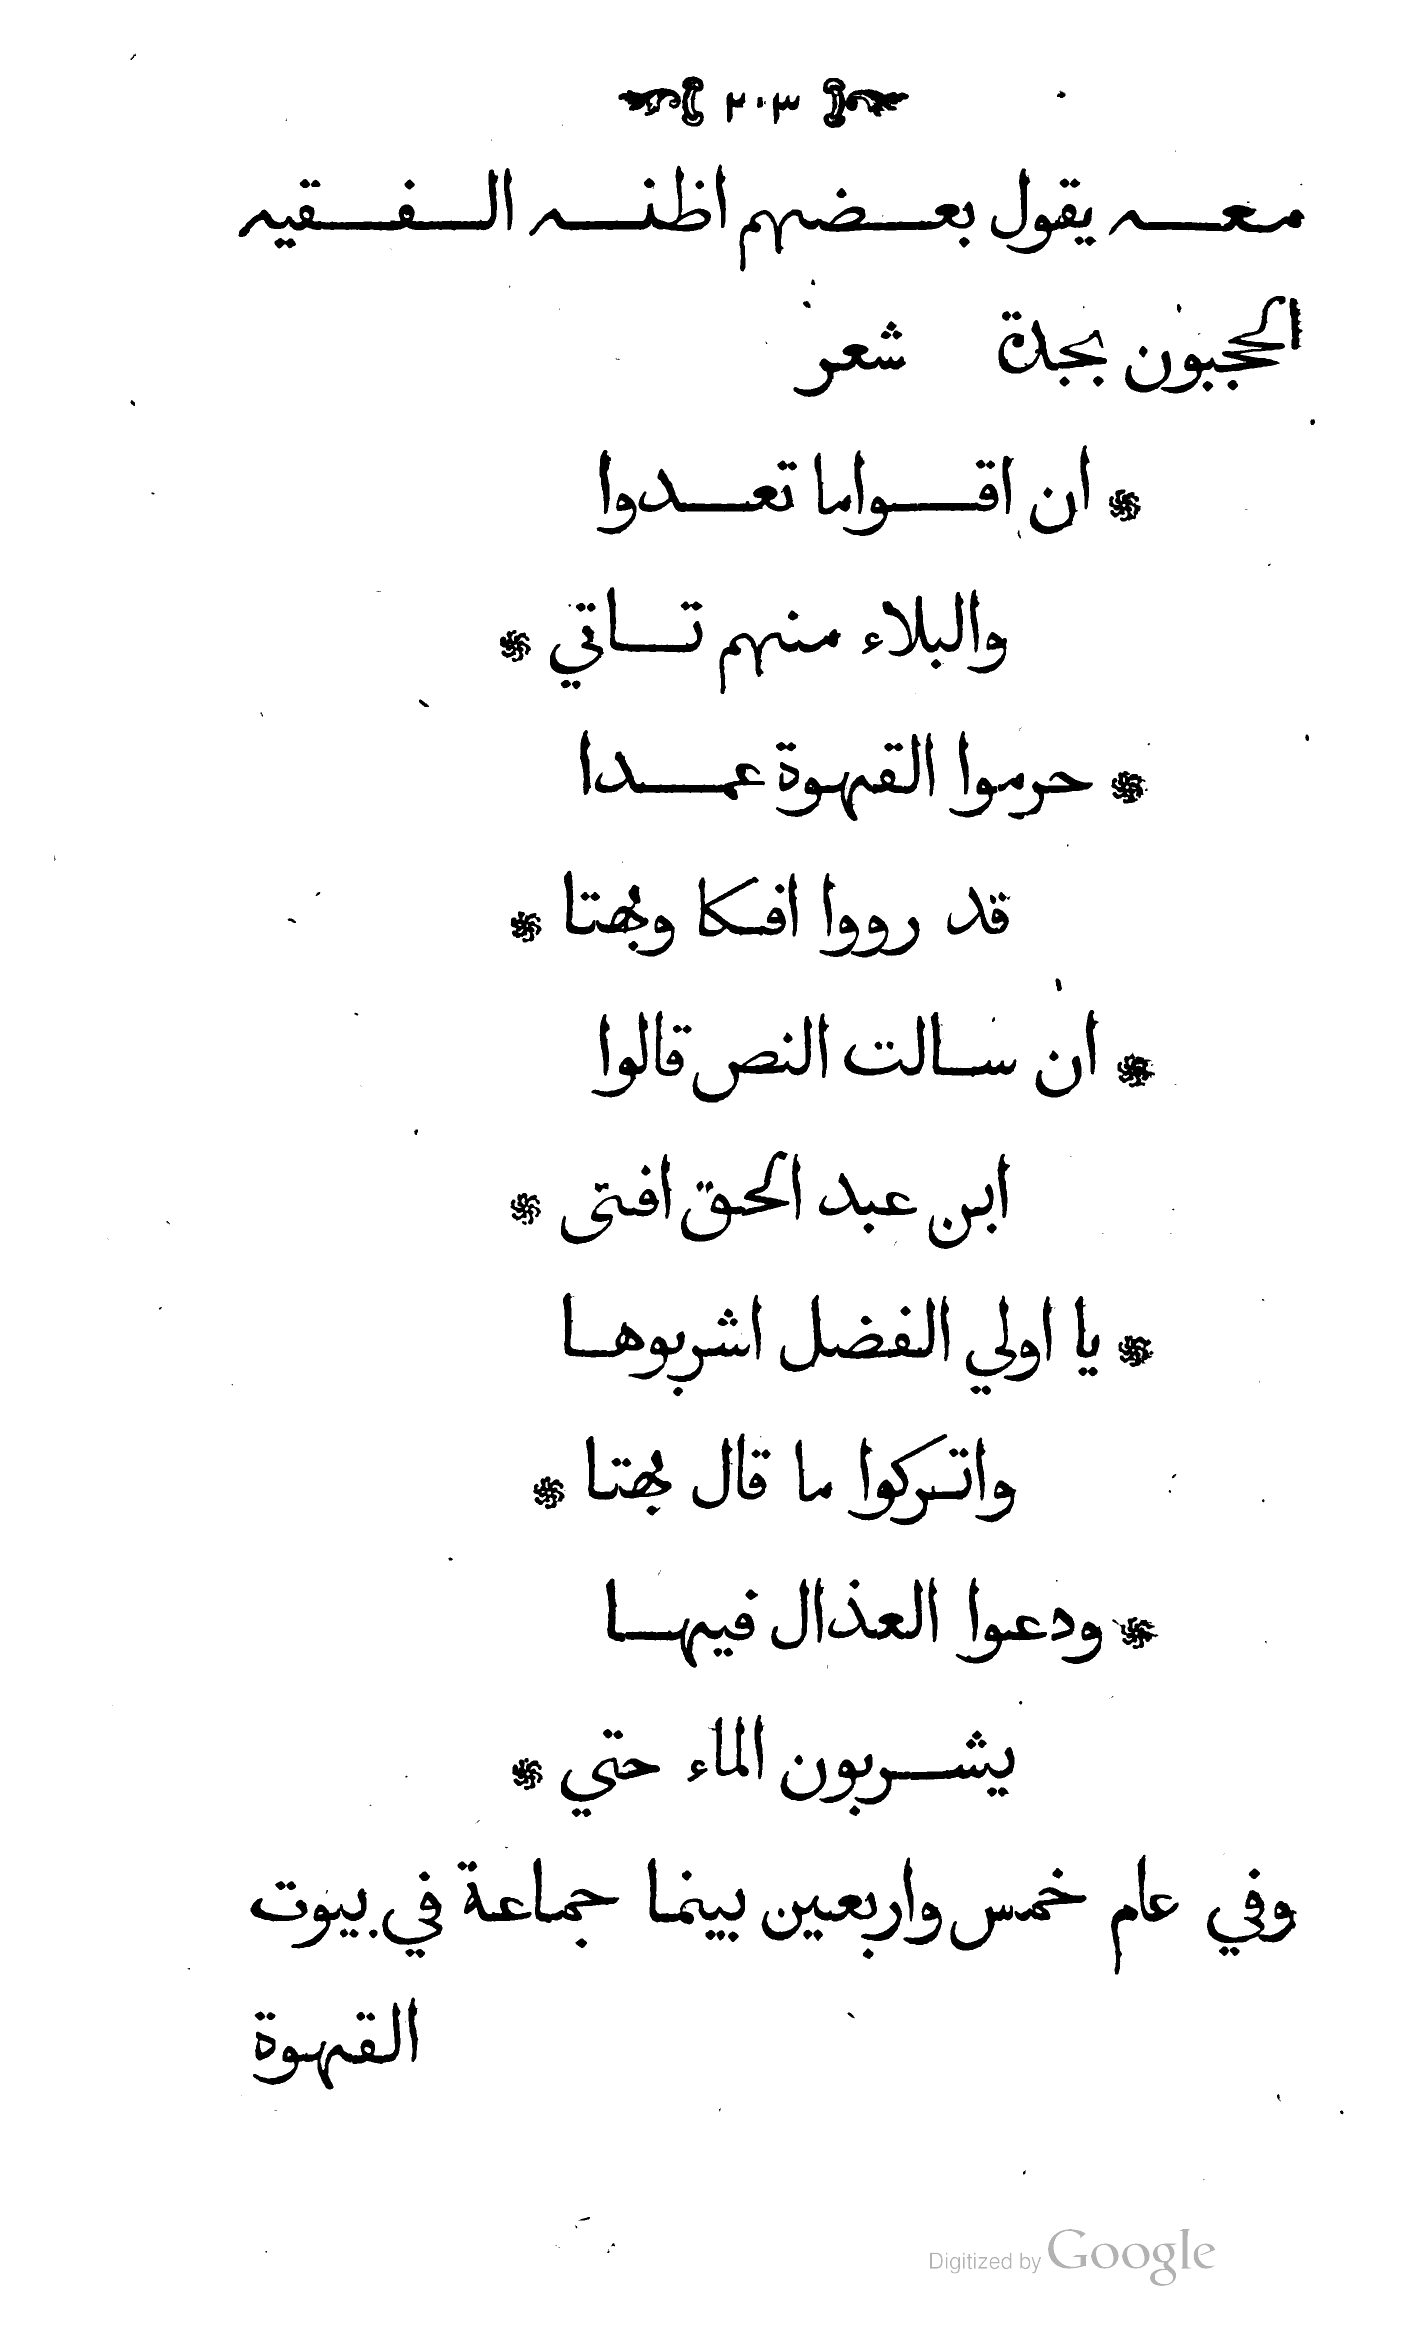 ٢٠٣
معه يقول بعضهم اظنه الفقيه
الحجبون بجدة شعر
* ان اقواما تعدوا
والبلاء منهم تاتي *
* حرموا القهوة عمدا
قد رووا افكا وبهتا *
* ان سالت النص قالوا
ابن عبد الحق افتى *
* يا اولي الفضل اشربوها
واتركوا ما قال بهتا *
* ودعوا العذال فيها
يشربون الماء حتي *
وفي عام خمس واربعين بينما جماعة في بيوت
القهوة
Digitized by Google